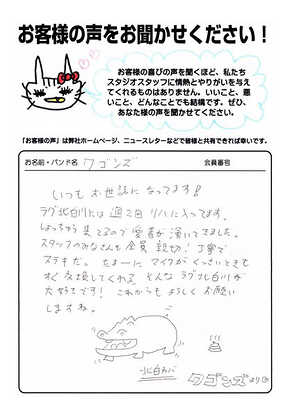 お客様の声をお聞かせください！
お客様の喜びの声を聞くほど、私たち
スタジオスタッフに情熱とやりがいを与え
てくれるものはありません。いいこと、悪
いこと、どんなことでも結構です。ぜひ、
あなた様の声を聞かせてください。
「お客様の声」は弊社ホームページ、ニュースレターなどで皆様と共有できれば幸いです。
お名前・バンド名 ワゴンズ 会員番号
いつもお世話になってます！
ラグ北白川には週2回リハに入ってます。
しょっちゅう来てるので愛着が湧いてきました。
スタッフのみなさんも全員親切、丁寧で
ステキだ。たまーにマイクがくっさいときも
すぐ交換してくれる そんなラグ北白川が
大好きです！これからもよろしくお願い
しますね。
北白カバ
ワゴンズより